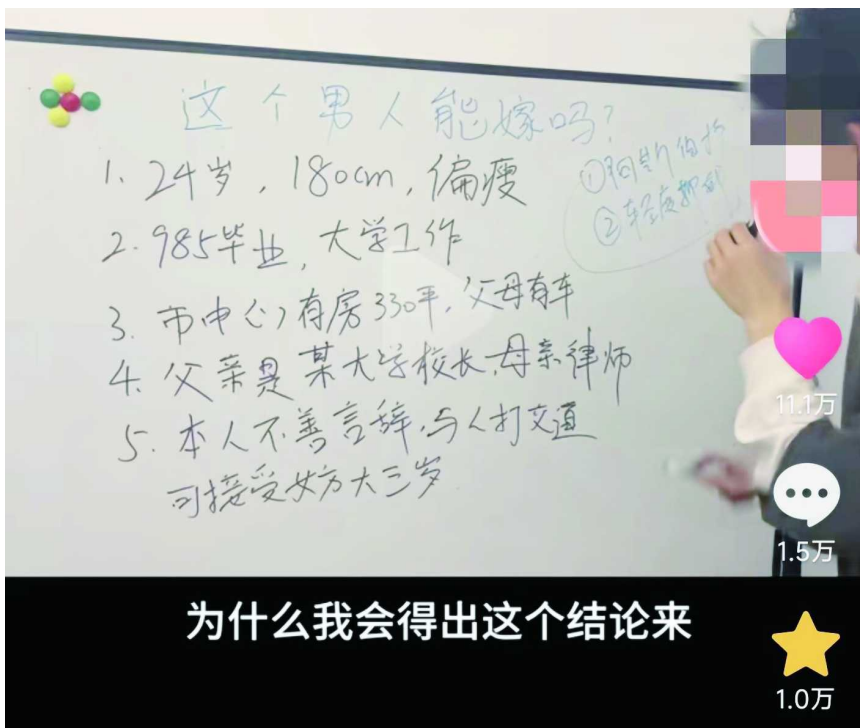 这个男人能嫁吗？
1. 24岁，180cm，偏瘦
2. 985毕业，大学工作
3. 市中心有房330平，父母有车
4. 父亲是某大学校长，母亲律师
5. 本人不善言辞，与人打交道
可接受女方大三岁
①
②轻度抑郁
11.1万
1.5万
为什么我会得出这个结论来
1.0万